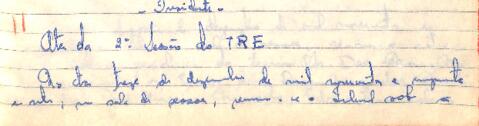 - Presidente -
Ata da 2ª Sessão do TRE
Aos treze de dezembro de mil novecentos e cinquenta
e sete, na sala de sessões, reuniu-se o Tribunal sob a